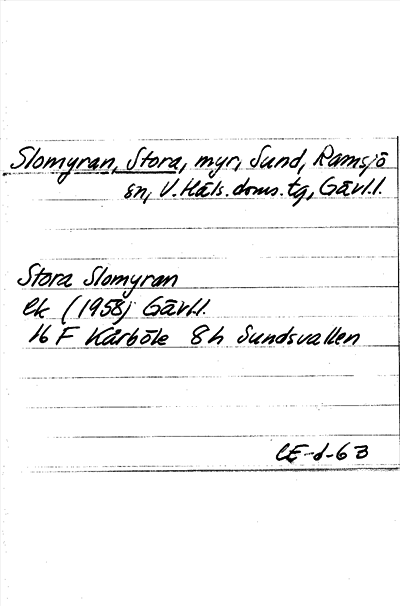 Slomyran, Stora, myr, Sund, Ramsjö
sn, V. Häls. doms. tg, Gävl.l.
Stora Slomyran
Ek (1958) Gävl.l.
16 F Kårböle 8h Sundsvallen
CE-d-63